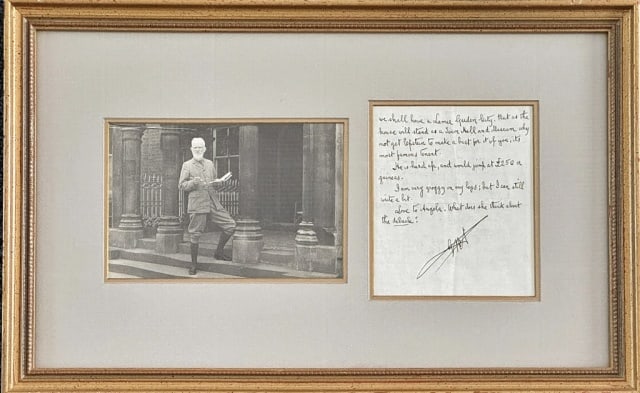 we shall have a Garden City. that as the
house will stand as a Town Hall and Museum why
not get Epstein to make a bust for it of you, its
most famous tenant.
He is hard up, and would jump at £250 or
guineas.
I am very groggy on my legs; but I can still
write a bit.
Love to Angela. What does she think about
the debacle?